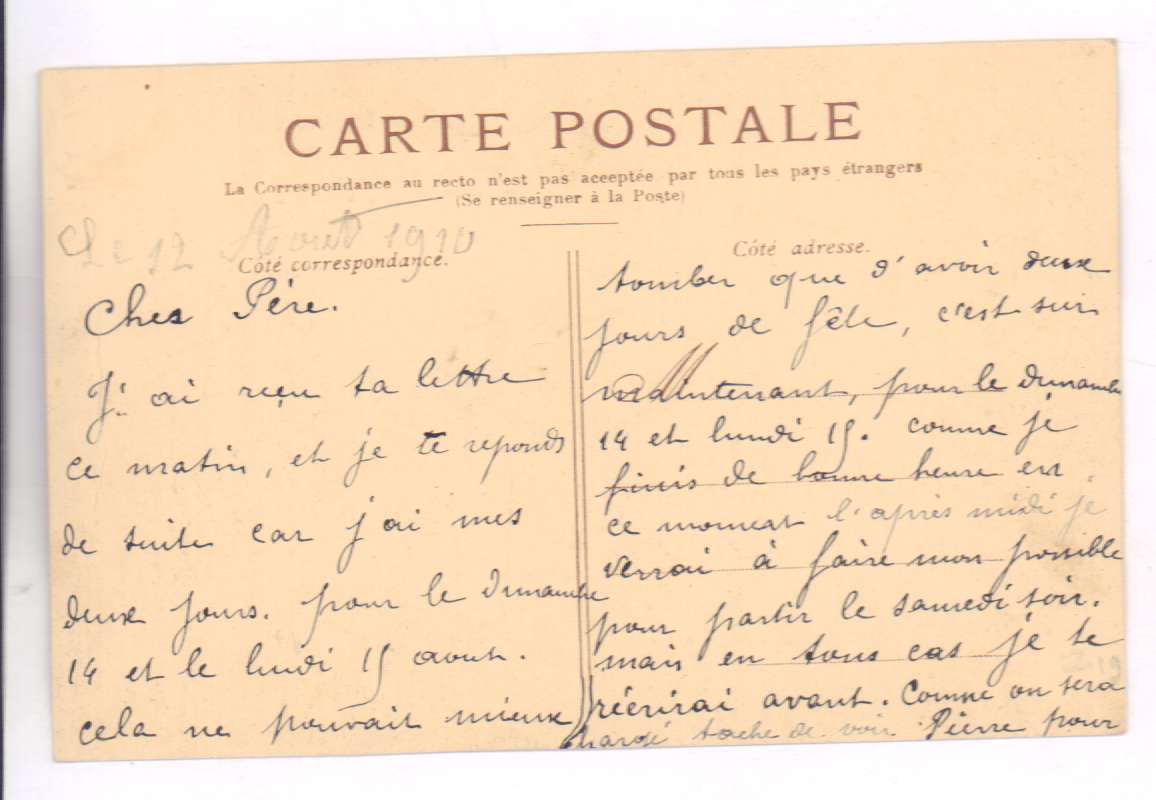 CARTE POSTALE
La Correspondance au recto n'est pas acceptée par tous les pays étrangers
(Se renseigner à la Poste)
Le 12 Aout 1910
Côté correspondance.
Cher Père.
J'ai reçu ta lettre
ce matin, et je te reponds
de suite car j'ai mes
deux jours. pour le dimanche
14 et le lundi 15 aout.
cela ne pouvait mieux
Côté adresse.
tomber que d'avoir deux
jours de fête, c'est sur
maintenant, pour le dimanche
14 et lundi 15. comme je
finis de bonne heure en
ce moment l'après midi je
verrai à faire mon possible
pour partir le samedi soir.
mais en tous cas je te
réécrirai avant. Comme on sera
chargé tache de voir Pierre pour